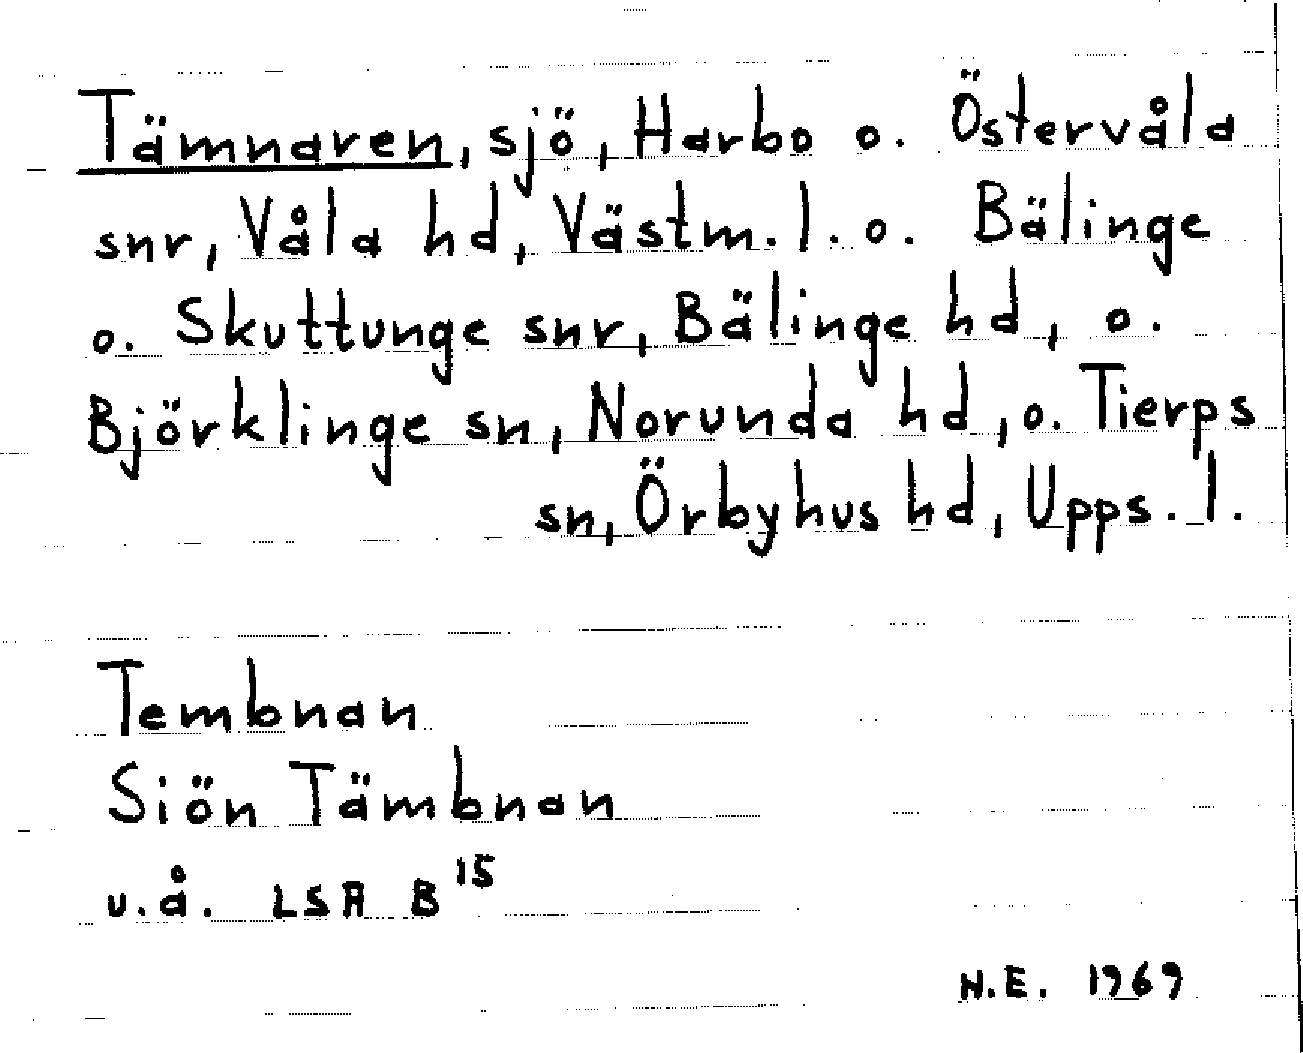 Tämnaren, sjö, Harbo o. Östervåla
snr, Våla hd, Västm. l. o. Bälinge
o. Skuttunge snr, Bälinge hd, o.
Björklinge sn, Norunda hd, o. Tierps
sn, Örbyhus hd, Upps. l.
Tembnan
Siön Tämbnan
u.å. LSA B 15
N.E. 1969